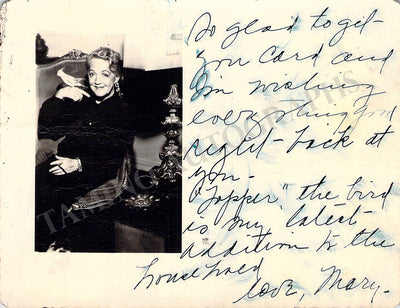 So glad to get
you card and
I'm wishing
everything good
right back at
you -
"Topper" the bird
is my latest
addition to the
household
love, Mary.
TAMINO AUTOGRAPHS